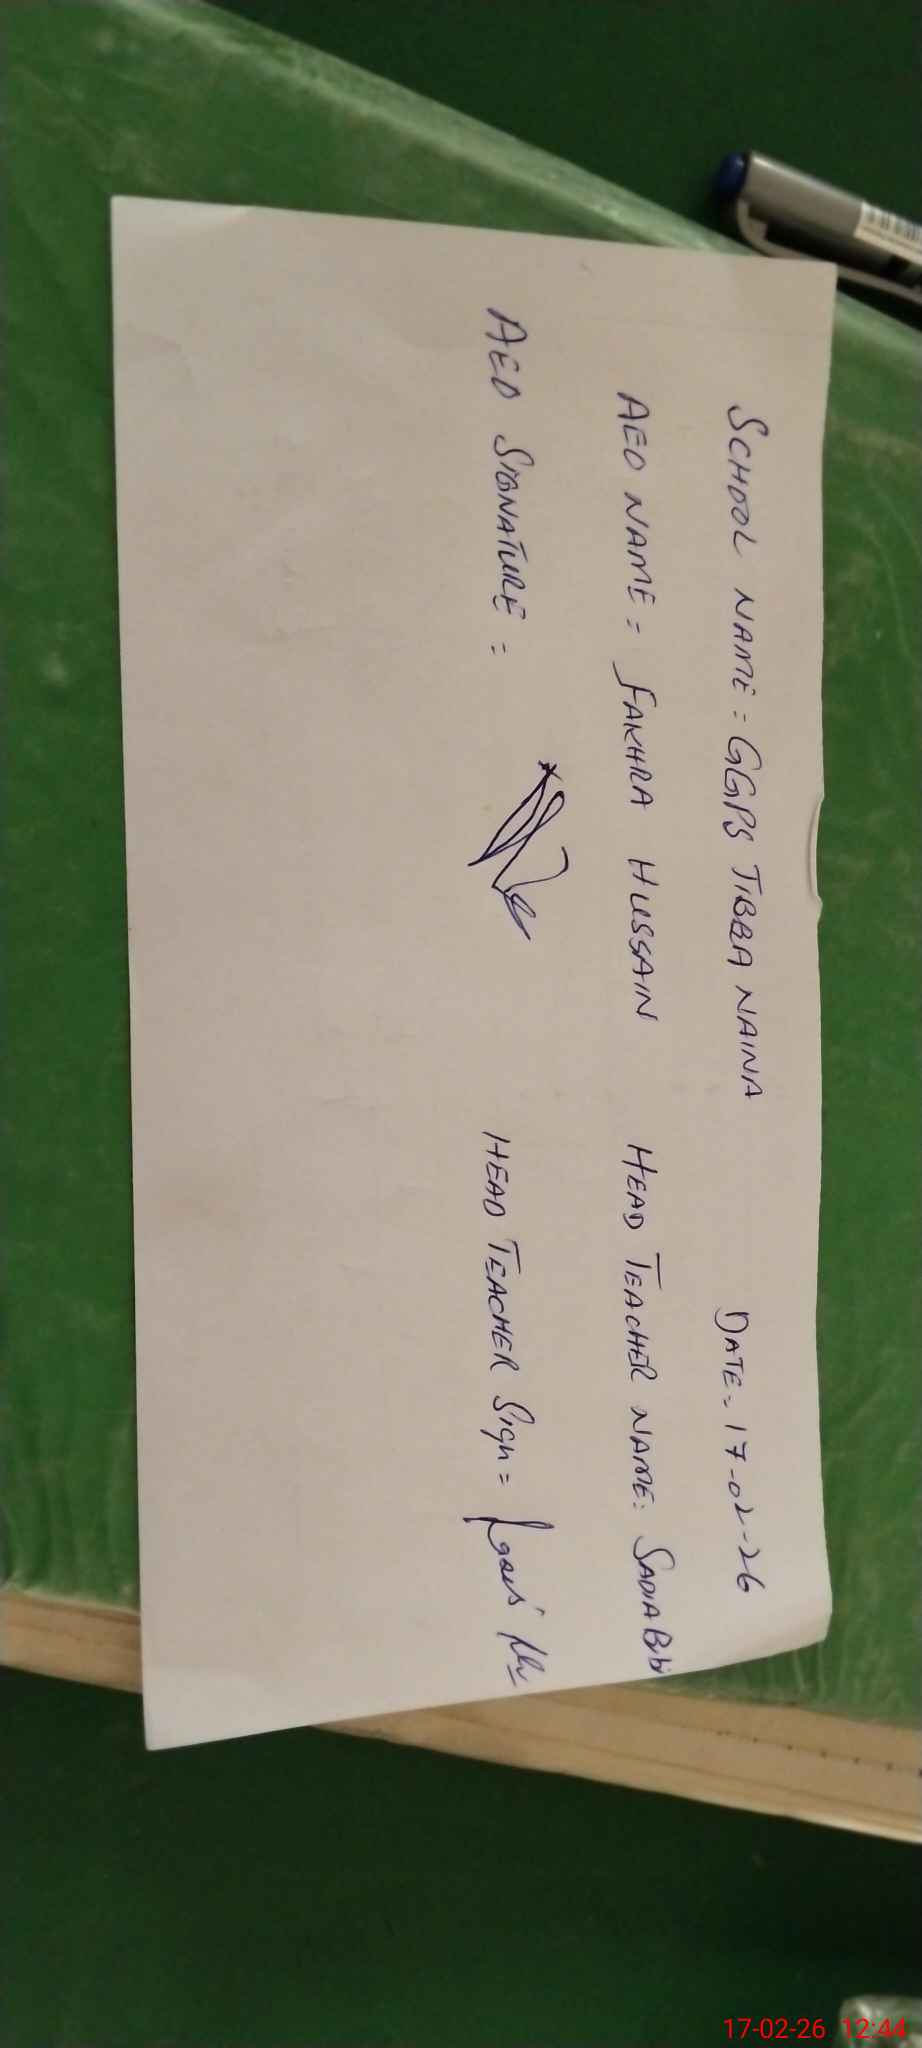 SCHOOL NAME = GGPS TIBBA NAINA DATE = 17-02-26
AEO NAME = FAKHRA HUSSAIN HEAD TEACHER NAME: SADIA Bibi
AEO SIGNATURE = HEAD TEACHER Sign =
17-02-26 12:44